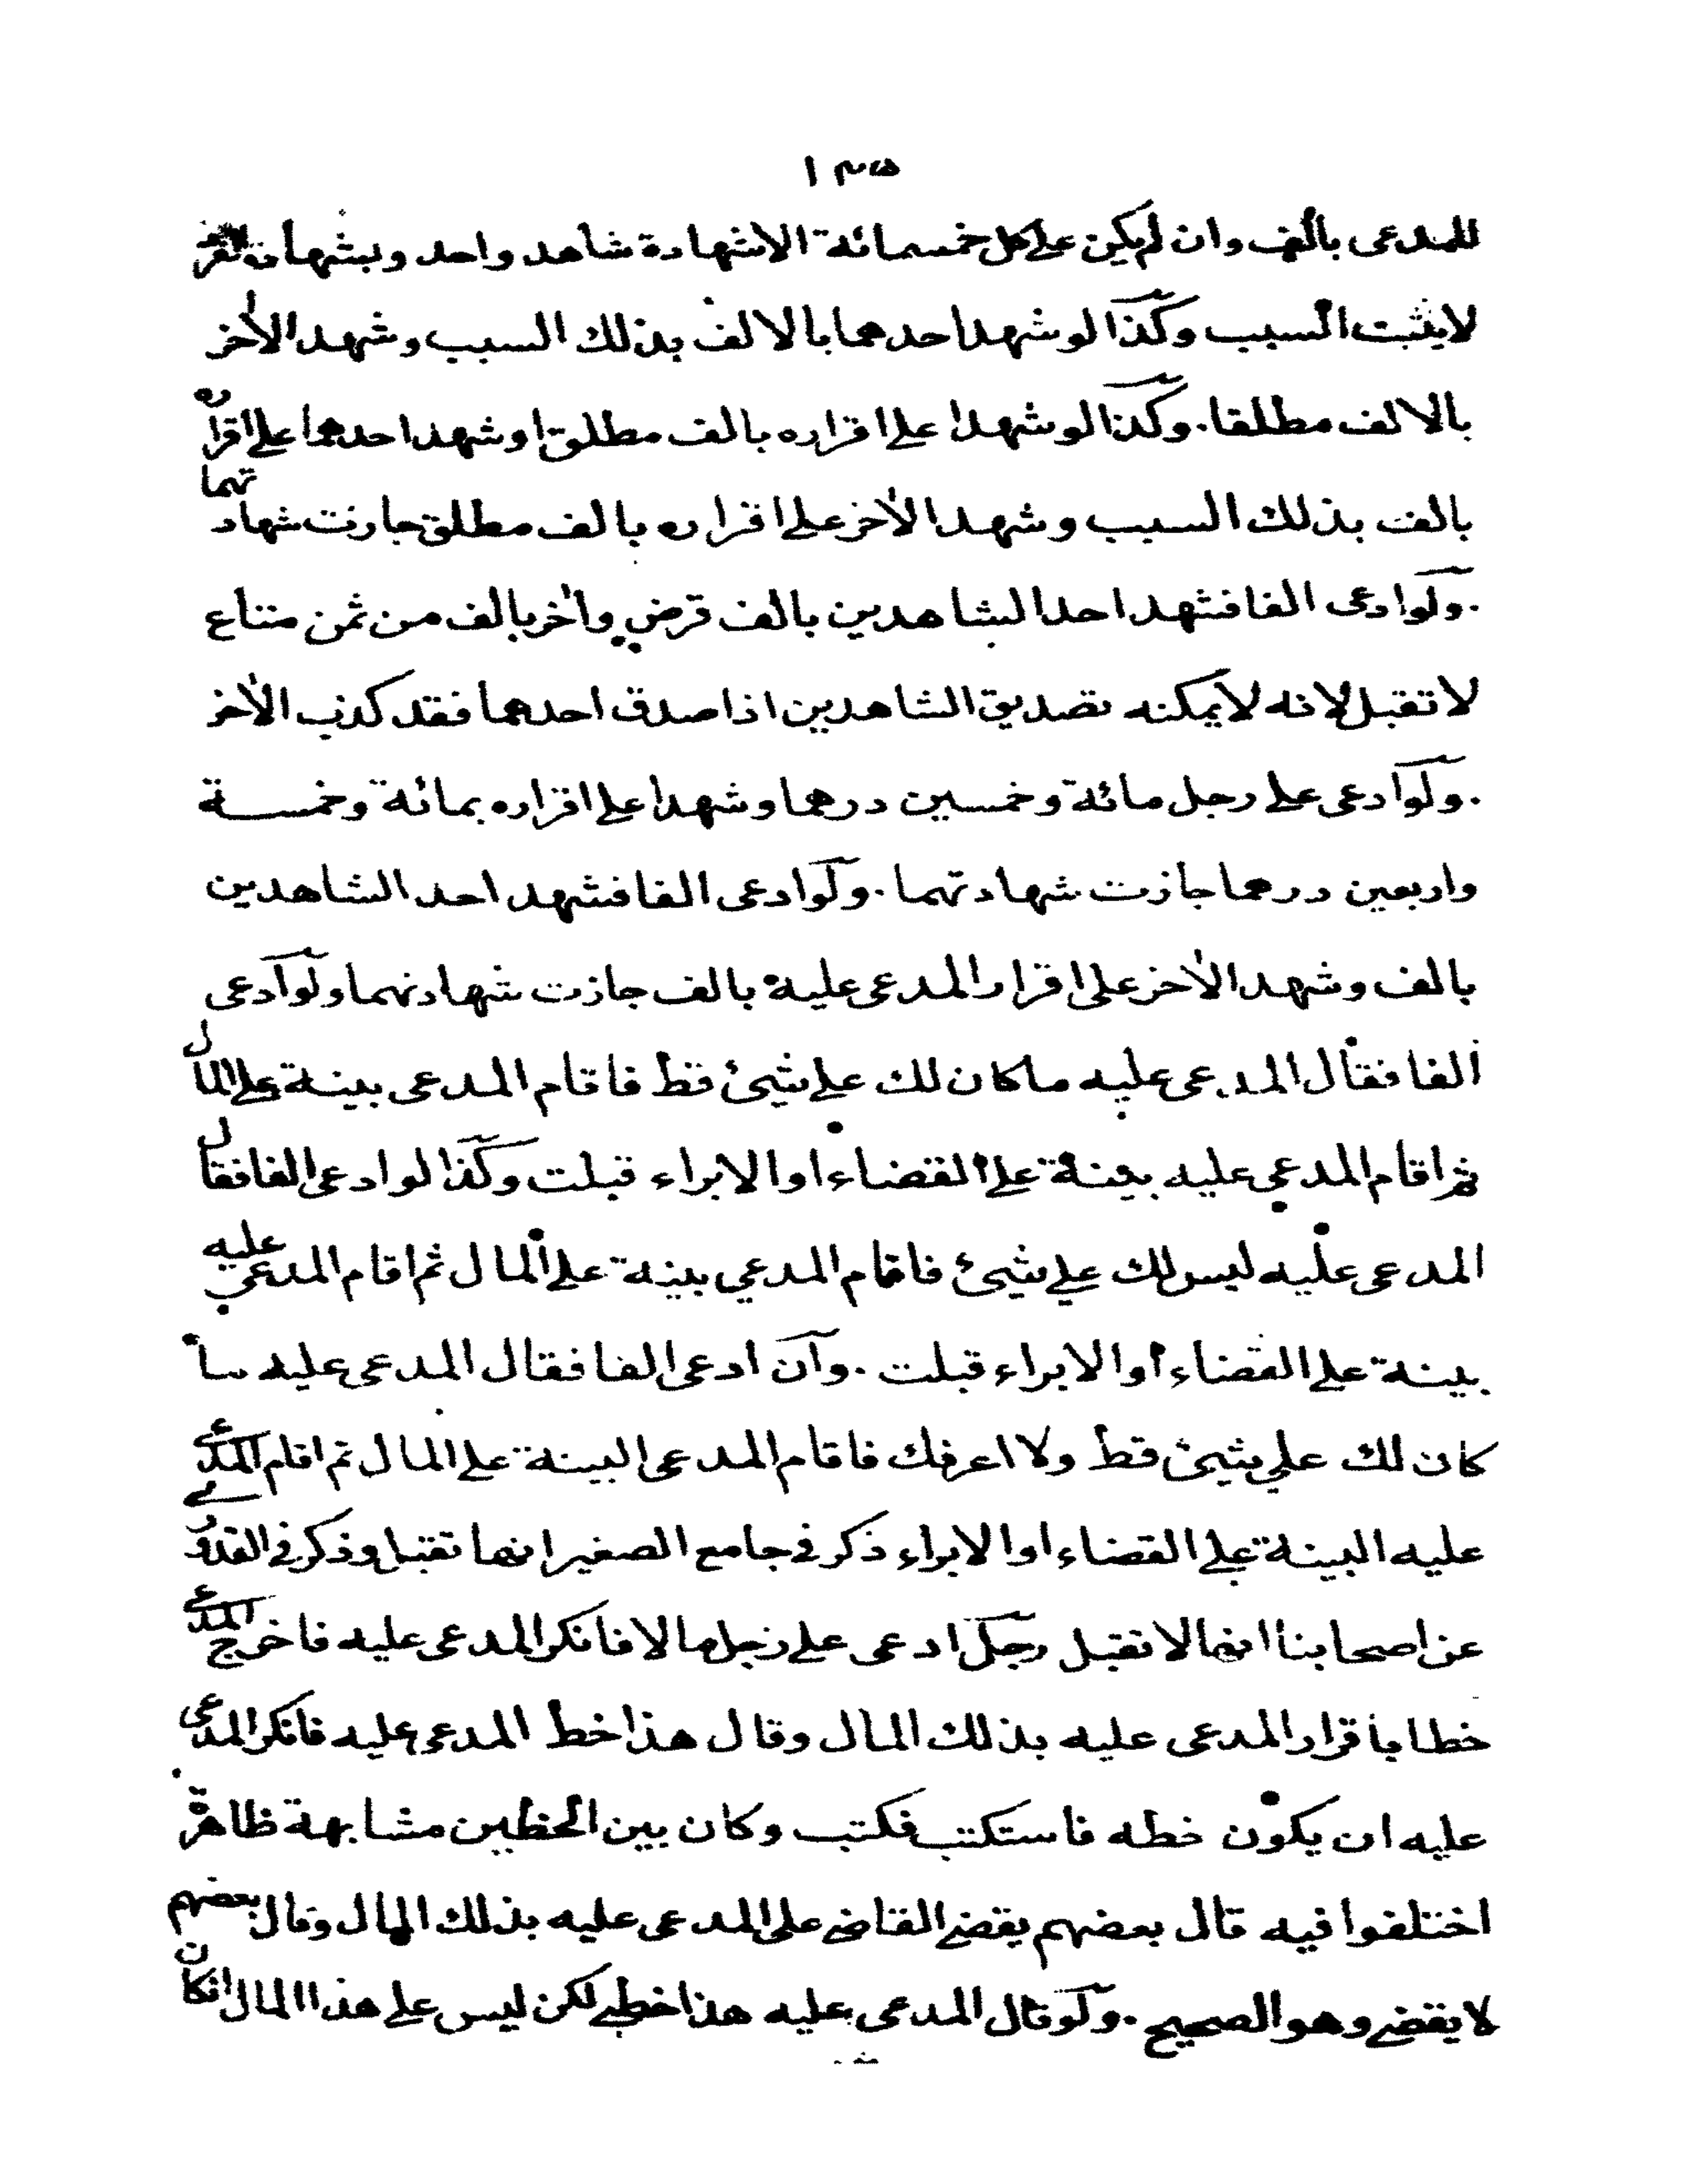 ١٣٥
للمدعى بألف وان لم يكن على كل خمسمائة الا شهادة شاهد واحد وبشهادة
لا يثبت السبب وكذا لو شهد احدهما بالالف بذلك السبب وشهد الاخر
بالالف مطلقا. وكذا لو شهدا على اقراره بالف مطلق او شهد احدهما على اقراره
بالف بذلك السبب وشهد الاخر على اقراره بالف مطلق جازت شهادتهما
.ولو ادعى الفا فشهد احد الشاهدين بالف قرض واخر بالف من ثمن متاع
لا تقبل لانه لا يمكنه تصديق الشاهدين اذا صدق احدهما فقد كذب الاخر
.ولو ادعى على رجل مائة وخمسين درهما وشهدا على اقراره بمائة وخمسة
واربعين درهما جازت شهادتهما .ولو ادعى الفا فشهد احد الشاهدين
بالف وشهد الاخر على اقرار المدعى عليه بالف جازت شهادتهما ولو ادعى
الفا فقال المدعى عليه ما كان لك على شيئ قط فاقام المدعى بينة على المال
ثم اقام المدعي عليه بينة على القضاء او الابراء قبلت وكذا لو ادعى الفا فقال
المدعى عليه ليس لك علي شيئ فاقام المدعي بينة على المال ثم اقام المدعي عليه
بينة على القضاء او الابراء قبلت .وان ادعى الفا فقال المدعى عليه ما
كان لك علي شيئ قط ولا اعرفك فاقام المدعى البينة على المال ثم اقام المدعى
عليه البينة على القضاء او الابراء ذكر في جامع الصغير انها تقبل وذكر في القدوري
عن اصحابنا انها لا تقبل رجل ادعى على رجل مالا فانكر المدعى عليه فاخرج المدعى
خطا باقرار المدعى عليه بذلك المال وقال هذا خط المدعى عليه فانكر المدعى
عليه ان يكون خطه فاستكتب فكتب وكان بين الخطين مشابهة ظاهرة
اختلفوا فيه قال بعضهم يقضي القاضي على المدعى عليه بذلك المال وقال بعضهم
لا يقضي وهو الصحيح .ولو قال المدعى عليه هذا خطي لكن ليس علي هذا المال انكان